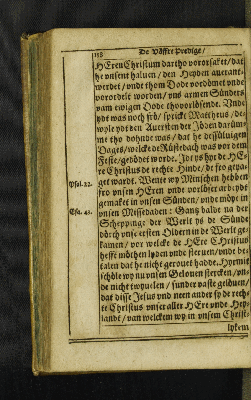 De Vöffte Predige/
HEren Christum dartho vororsaket / dat
he vnsent haluen / den Heyden auerant=
werdet / vnde thom Dode vordömet vnde
vorordelt worden / vns armen Sünders
vam ewigen Dode thovorlösende. Vnde
ydt was noch frö / sprickt Mattheus / de=
wyle ydt den Auersten der Jöden darüm=
me tho donde was / dat he dessüluigen
Dages / welcke de Rüstedach was vor dem
Feste / gedödet worde. Idt ys hyr de HE=
re Christus de rechte Hinde / de fro geja=
get wardt. Wente wy Minschen hebben
Psal. 22.
fro vnsen HEren vnde vorlöser arbeydt
gemaket in vnsen Sünden / vnde möye in
vnsen Missedaden: Gantz balde na der
Esa. 43.
Scheppinge der Werlt ys de Sünde
dörch vnse ersten Olderen in de Werlt ge=
kamen / vor welcke de HEre CHristus
hefft möthen lyden vnde steruen / vnde be=
talen dat he nicht gerouet hadde. Hyrmit
schöle wy nu vnsen Gelouen stercken / vn=
de nicht twyuelen / sunder vaste gelöuen /
dat disse Jesus vnd neen ander sy de rech=
te Christus vnser aller HEre vnde Hey=
landt / van welckem wy in vnsem Christ=
lykem